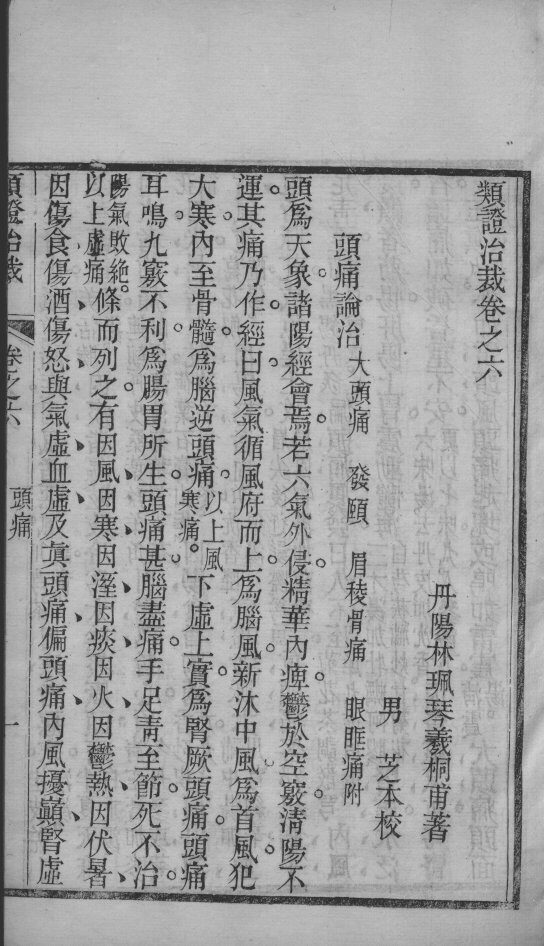 類證治裁卷之六
丹陽林珮琴羲桐甫著
男　芝本校
頭痛論治　大頭痛　發頤　眉稜骨痛　眼眶痛附
頭爲天象諸陽經會焉若六氣外侵精華內痺鬱於空竅淸陽不
運其痛乃作經曰風氣循風府而上爲腦風新沐中風爲首風犯
大寒內至骨髓爲腦逆頭痛以上風寒痛。下虛上實爲腎厥頭痛頭痛
耳鳴九竅不利爲腸胃所生頭痛甚腦盡痛手足靑至節死不治
陽氣敗絕。以上虛痛條而列之有因風因寒因溼因痰因火因鬱熱因伏暑
因傷食傷酒傷怒與氣虛血虛及眞頭痛偏頭痛內風擾巔腎虛
類證治裁
卷之六
頭痛
一